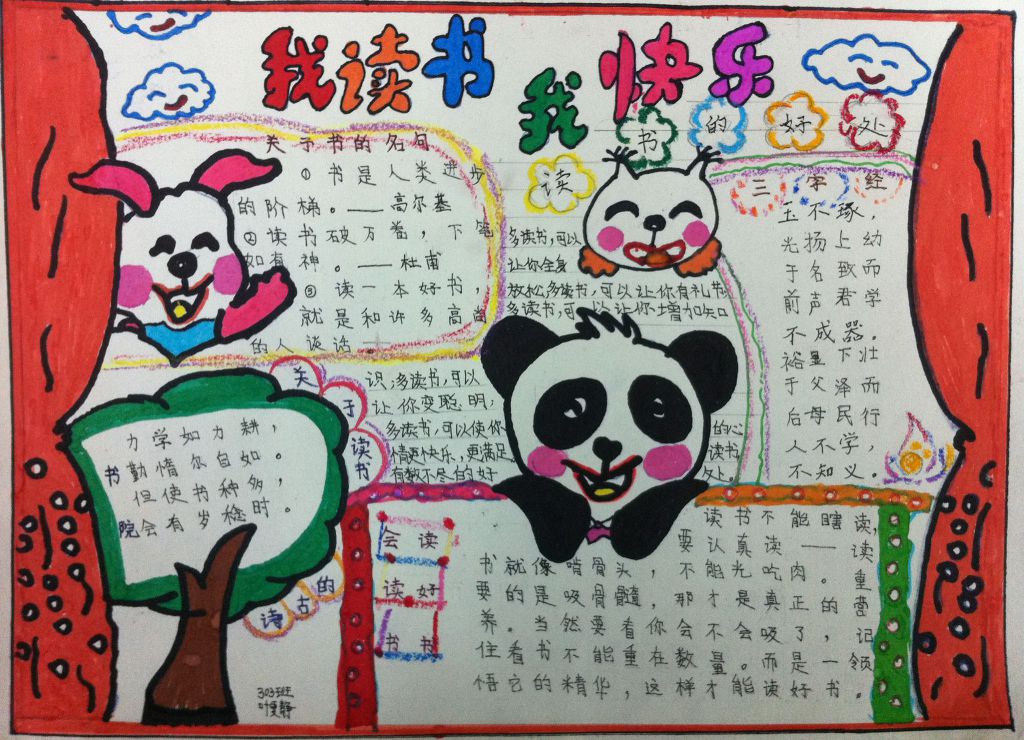 我读书 我快乐
关于书的名句
①书是人类进步
的阶梯。——高尔基
②读书破万卷，下笔
如有神。——杜甫
③读一本好书，
就是和许多高尚
的人谈话。
读书的好处
多读书，可以
让你全身
放松；多读书，可以让你有礼书
多读书，可以让你增加知
识；多读书，可以
让你变聪明；
多读书，可以使你的心
情更快乐，更满足
读书
有数不尽的好处。
三字经
玉不琢，
光扬上幼
于名致而
前声君学
不成器。
裕垩下壮
于父泽而
后母民行
人不学，
不知义。
关于读书
的古诗
力学如力耕，
勤惰尔自知。
但使书种多，
会有岁稔时。
书院
会读
读好
书书
读书不能瞎读，
要认真读——读
书就像啃骨头，不能光吃肉。重
要的是吸骨髓，那才是真正的营
养。当然要看你会不会吸了，记
住看书不能重在数量。而是一领
悟它的精华，这样才能读好书。
303班
叶更静